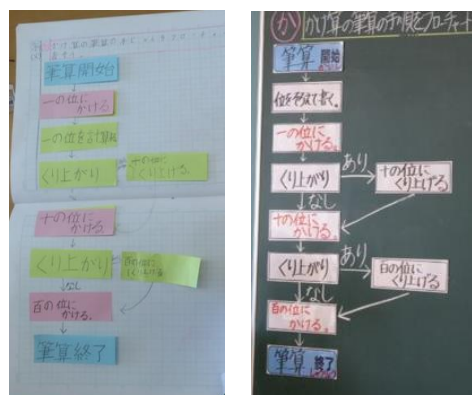 筆算開始
一の位に
かける
一の位を計算
くり上がり
十の位に
くり上げる。
十の位に
かける。
くり上がり
なし
百の位に
かける。
筆算終了
か かけ算の筆算の手順をフローチャート
筆算 開始
位をそろえて書く。
一の位に
かける。
くり上がり
あり
十の位に
くり上げる
なし
十の位に
かける。
くり上がり
あり
百の位に
くり上げる
なし
百の位に
かける。
筆算 終了